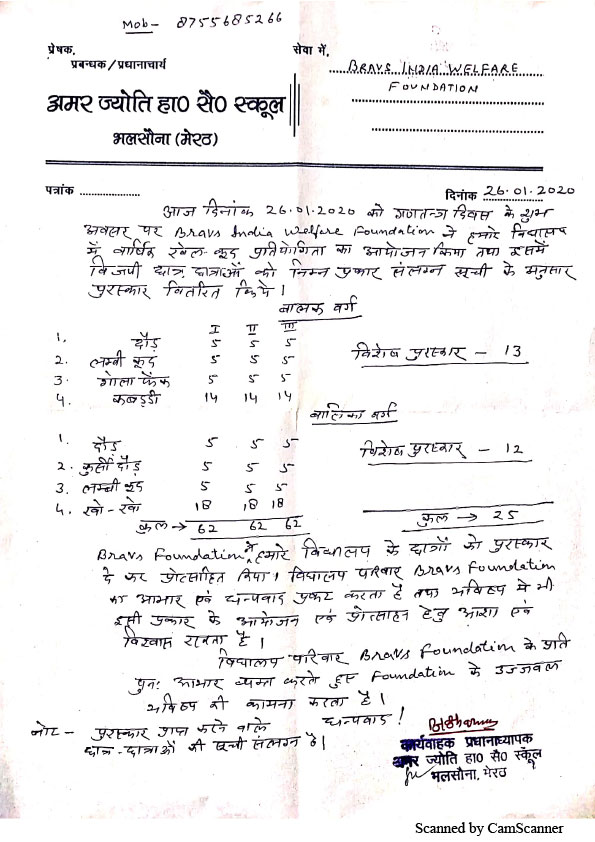 Mob- 8755685266
प्रेषक,
सेवा में,
प्रबन्धक/प्रधानाचार्य
BRAVS INDIA WELFARE
FOUNDATION
अमर ज्योति हा0 सै0 स्कूल
भलसौना (मेरठ)
पत्रांक ..................
दिनांक 26.01.2020
आज दिनांक 26.01.2020 को गणतन्त्र दिवस के शुभ
अवसर पर Bravs India Welfare Foundation ने हमारे विद्यालय
में वार्षिक खेल-कूद प्रतियोगिता का आयोजन किया तथा इसमें
विजयी छात्र, छात्राओं को निम्न प्रकार संलग्न सूची के अनुसार
पुरस्कार वितरित किये।
बालक वर्ग
I II III
1. दौड़ 5 5 5
2. लम्बी कूद 5 5 5
विशेष पुरस्कार - 13
3. गोला फेंक 5 5 5
4. कबड्डी 14 14 14
बालिका वर्ग
1. दौड़ 5 5 5
विशेष पुरस्कार - 12
2. कुर्सी दौड़ 5 5 5
3. लम्बी कूद 5 5 5
4. खो-खो 18 18 18
कुल → 62 62 62
कुल → 25
Bravs Foundation ने हमारे विद्यालय के छात्रों को पुरस्कार
दे कर प्रोत्साहित किया। विद्यालय परिवार Bravs Foundation
का आभार एवं धन्यवाद प्रकट करता है तथा भविष्य में भी
इसी प्रकार के आयोजन एवं प्रोत्साहन हेतु आशा एवं
विश्वास रखता है।
विद्यालय परिवार Bravs Foundation के प्रति
पुनः आभार व्यक्त करते हुए Foundation के उज्जवल
भविष्य की कामना करता है।
धन्यवाद!
नोट - पुरस्कार प्राप्त करने वाले
छात्र-छात्राओं की सूची संलग्न है।
कार्यवाहक प्रधानाध्यापक
अमर ज्योति हा0 सै0 स्कूल
भलसौना, मेरठ
Scanned by CamScanner